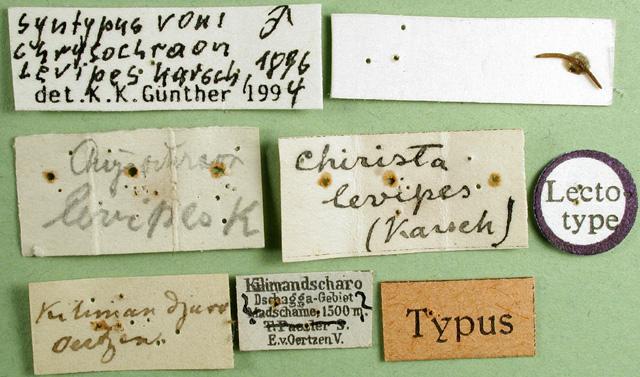 Syntypus von! ♂
Chrysochraon
Levipes Karsch, 1896
det. K. K. Günther 1994
Chrysochraon
levipes K
Chirista
levipes
(Karsch)
Lecto
type
Kilimandjaro
Oertzen.
Kilimandscharo
? Dschagga-Gebiet ?
Madschame, 1500 m.
T. Paesler S.
E. v. Oertzen V.
Typus